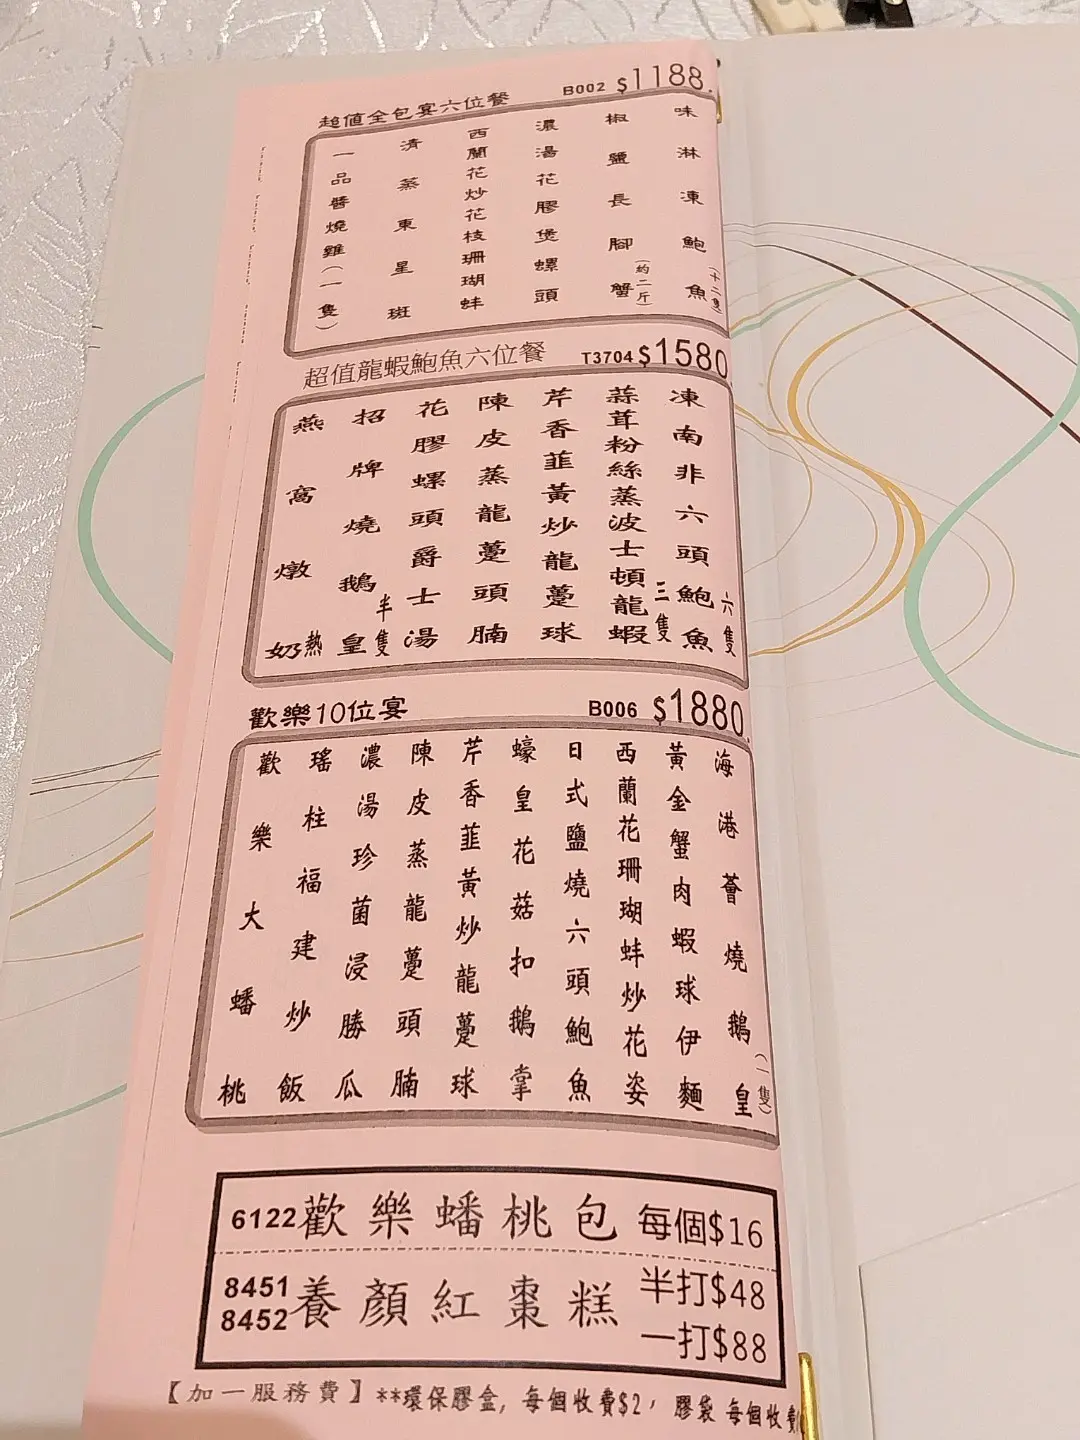 超值全包宴六位餐 B002 $1188.
味淋凍鮑魚(十二隻)
椒鹽長腳蟹(約二斤)
濃湯花膠煲螺頭
西蘭花炒花枝珊瑚蚌
清蒸東星斑
一品醬燒雞(一隻)
超值龍蝦鮑魚六位餐 T3704 $1580.
凍南非六頭鮑魚六隻
蒜茸粉絲蒸波士頓龍蝦三隻
芹香韮黃炒龍躉球
陳皮蒸龍躉頭腩
花膠螺頭爵士湯
招牌燒鵝皇半隻
燕窩燉奶熱
歡樂10位宴 B006 $1880.
海港薈燒鵝皇(一隻)
黃金蟹肉蝦球伊麵
西蘭花珊瑚蚌炒花姿
日式鹽燒六頭鮑魚
蠔皇花菇扣鵝掌
芹香韮黃炒龍躉球
陳皮蒸龍躉頭腩
濃湯珍菌浸勝瓜
瑤柱福建炒飯
歡樂大蟠桃
6122 歡樂蟠桃包 每個$16
8451 養顏紅棗糕 半打$48
8452 一打$88
【加一服務費】**環保膠盒, 每個收費$2, 膠袋 每個收費